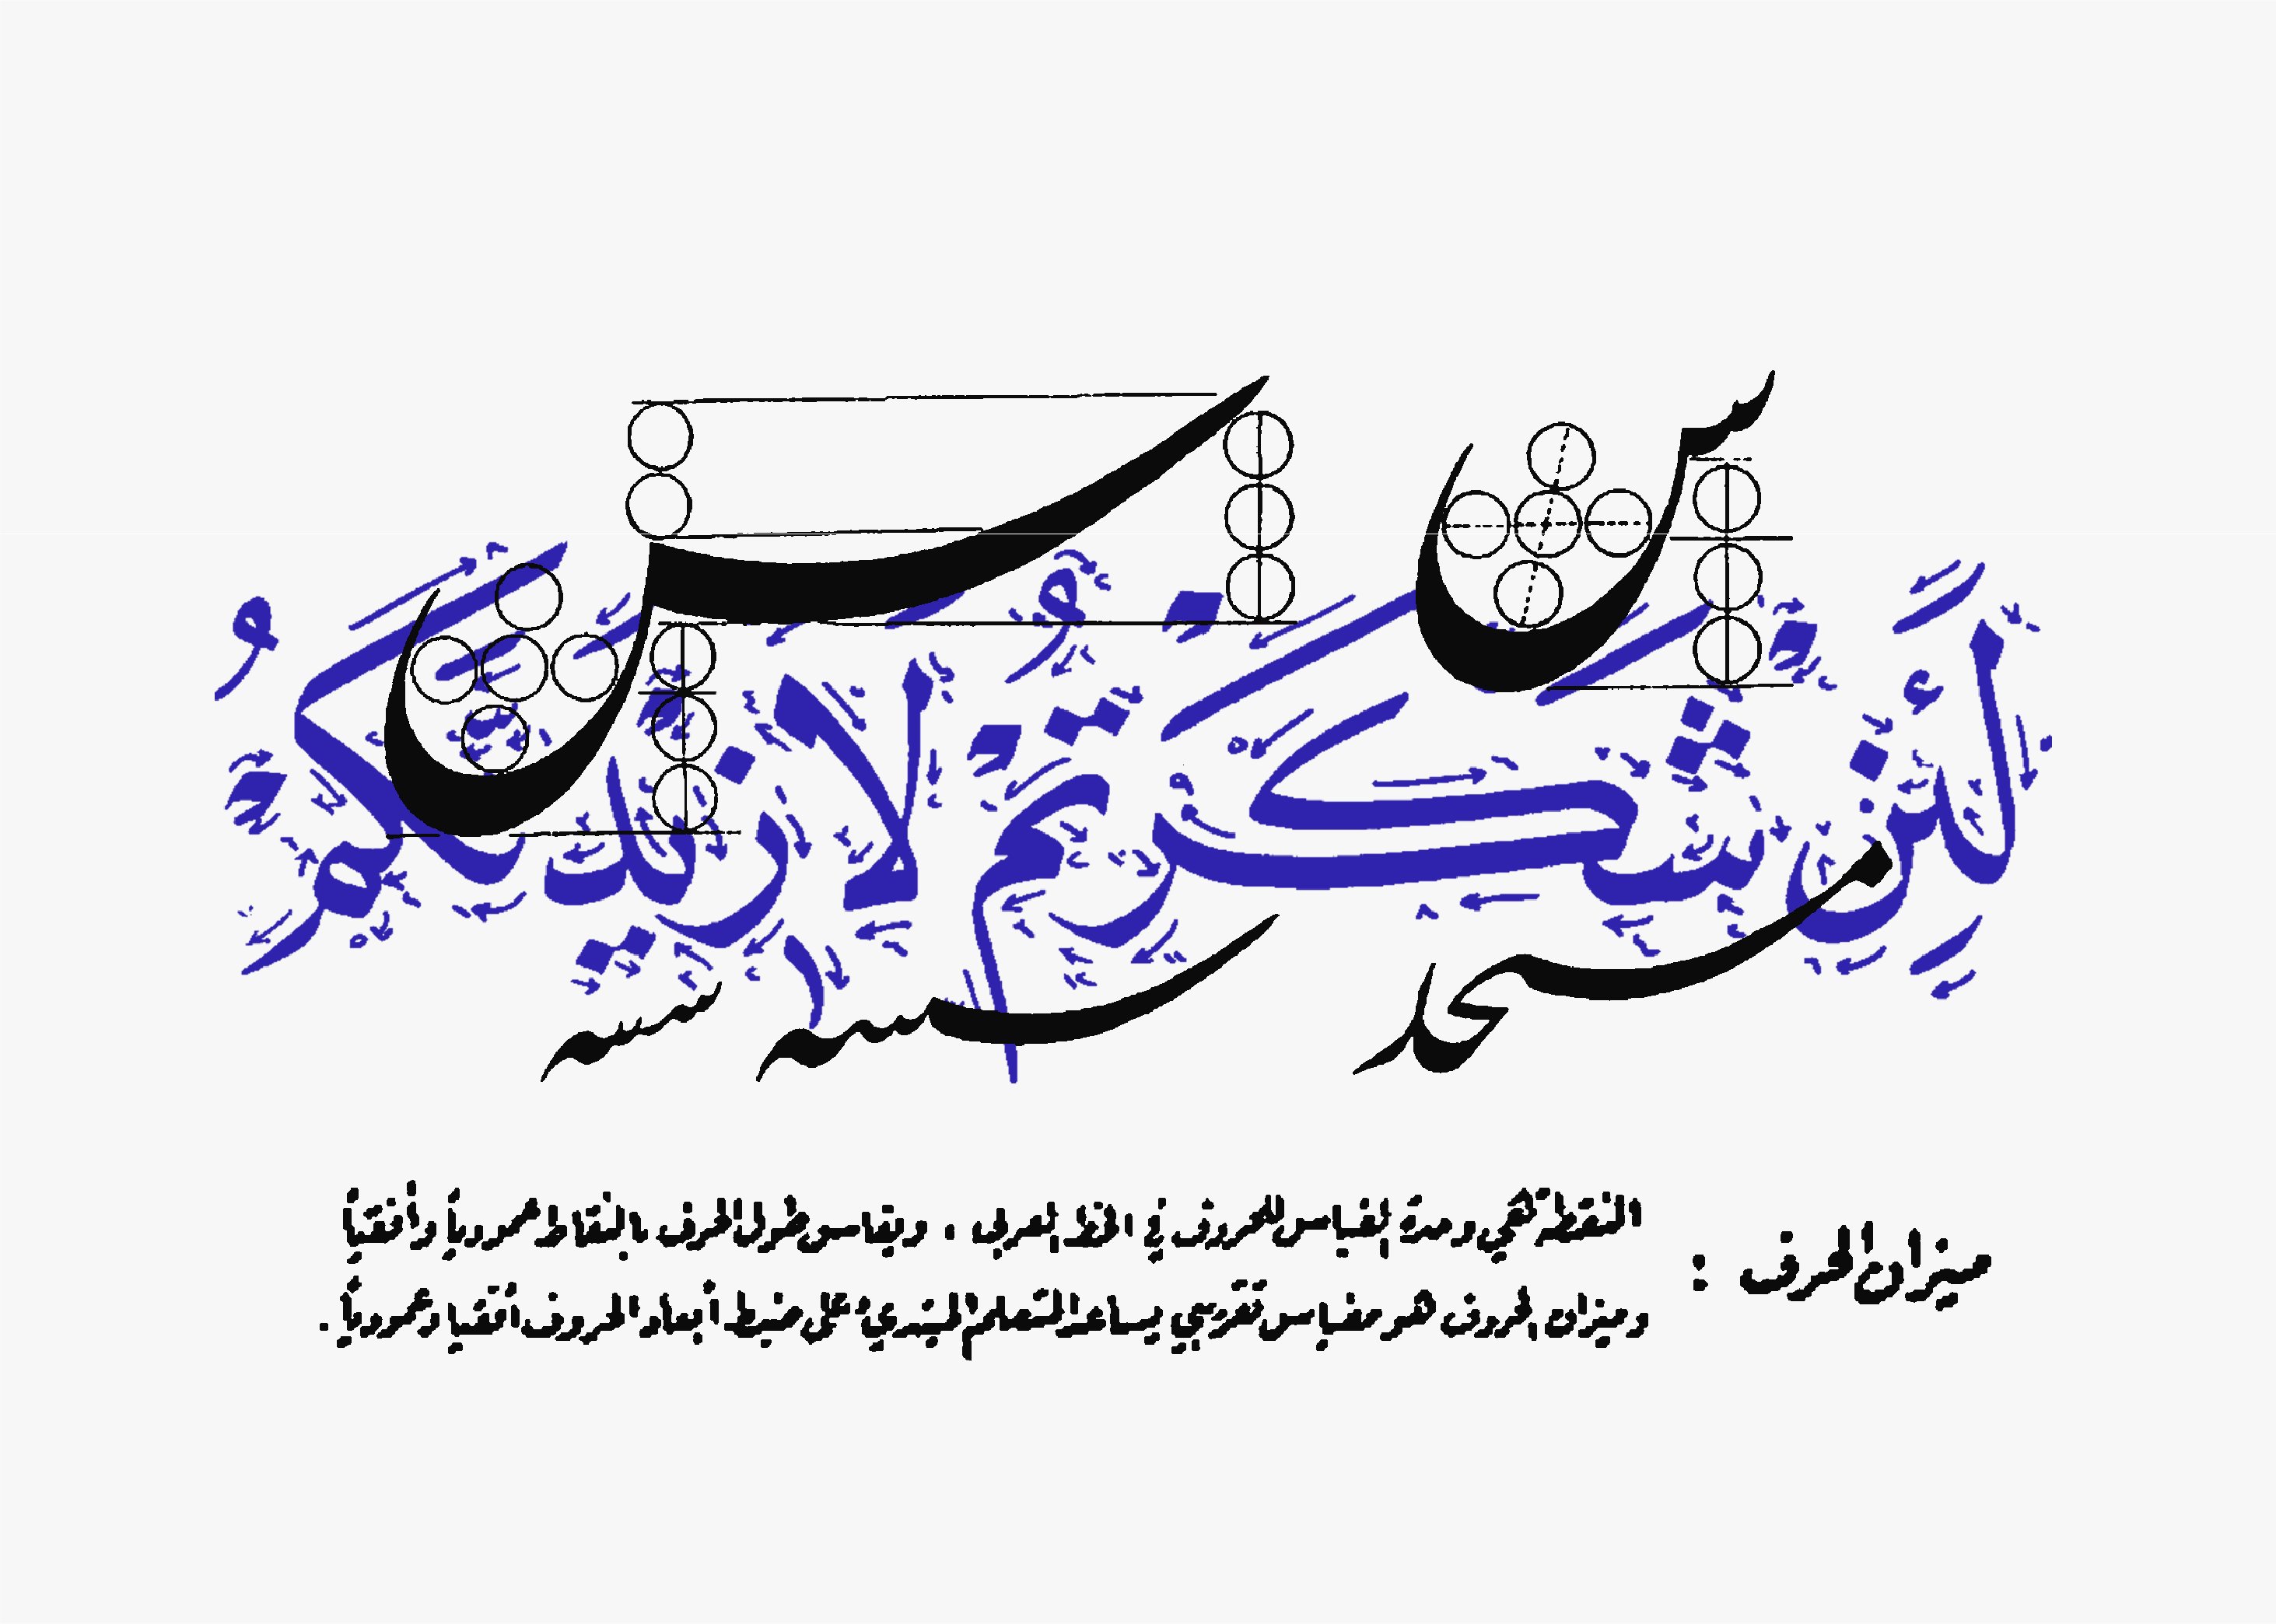 س س
لَئِن شَكَرْتُمْ لَأَزِيدَنَّكُمْ
سحد سسه سسه
ميزان الحرف :
النقطة هي وحدة القياس للحروف في الخط العربي ، ويقاس طول الحرف بالنقاط عمودياً وأفقياً
وميزان الحروف هو مقياس تقريبي يساعد المتعلم المبتدئ على ضبط أبعاد الحروف أفقيا وعمودياً .